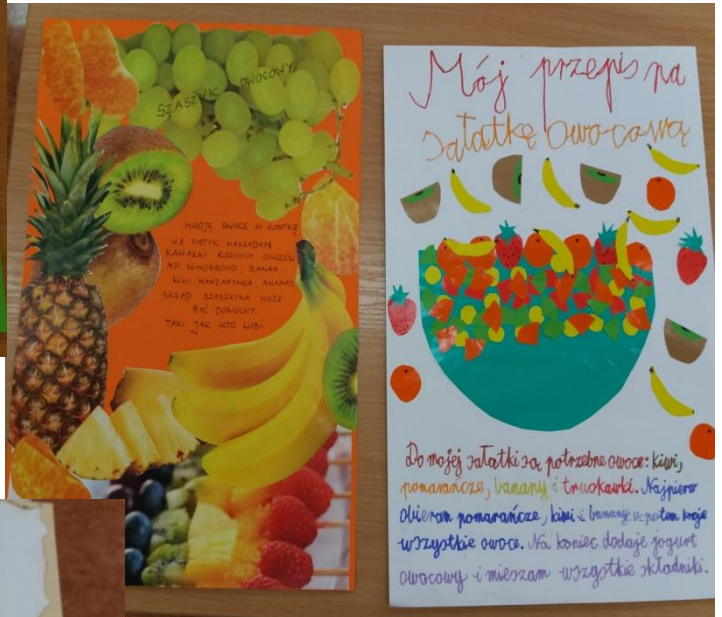 SZASZŁYK OWOCOWY
KROJĘ OWOCE W KOSTKĘ
NA PATYK NAKŁADAM
KAWAŁKI RÓŻNYCH OWOCÓW
NP WINOGRONO, BANAN
KIWI, MANDARYNKA, ANANAS
SKŁAD SZASZŁYKA MOŻE
BYĆ DOWOLNY
TAKI JAK KTO LUBI
Mój przepis na
sałatkę owocową
Do mojej sałatki są potrzebne owoce: kiwi,
pomarańcze, banany i truskawki. Najpierw
obieram pomarańcze, kiwi i banany a potem kroje
wszystkie owoce. Na koniec dodaje jogurt
owocowy i mieszam wszystkie składniki.